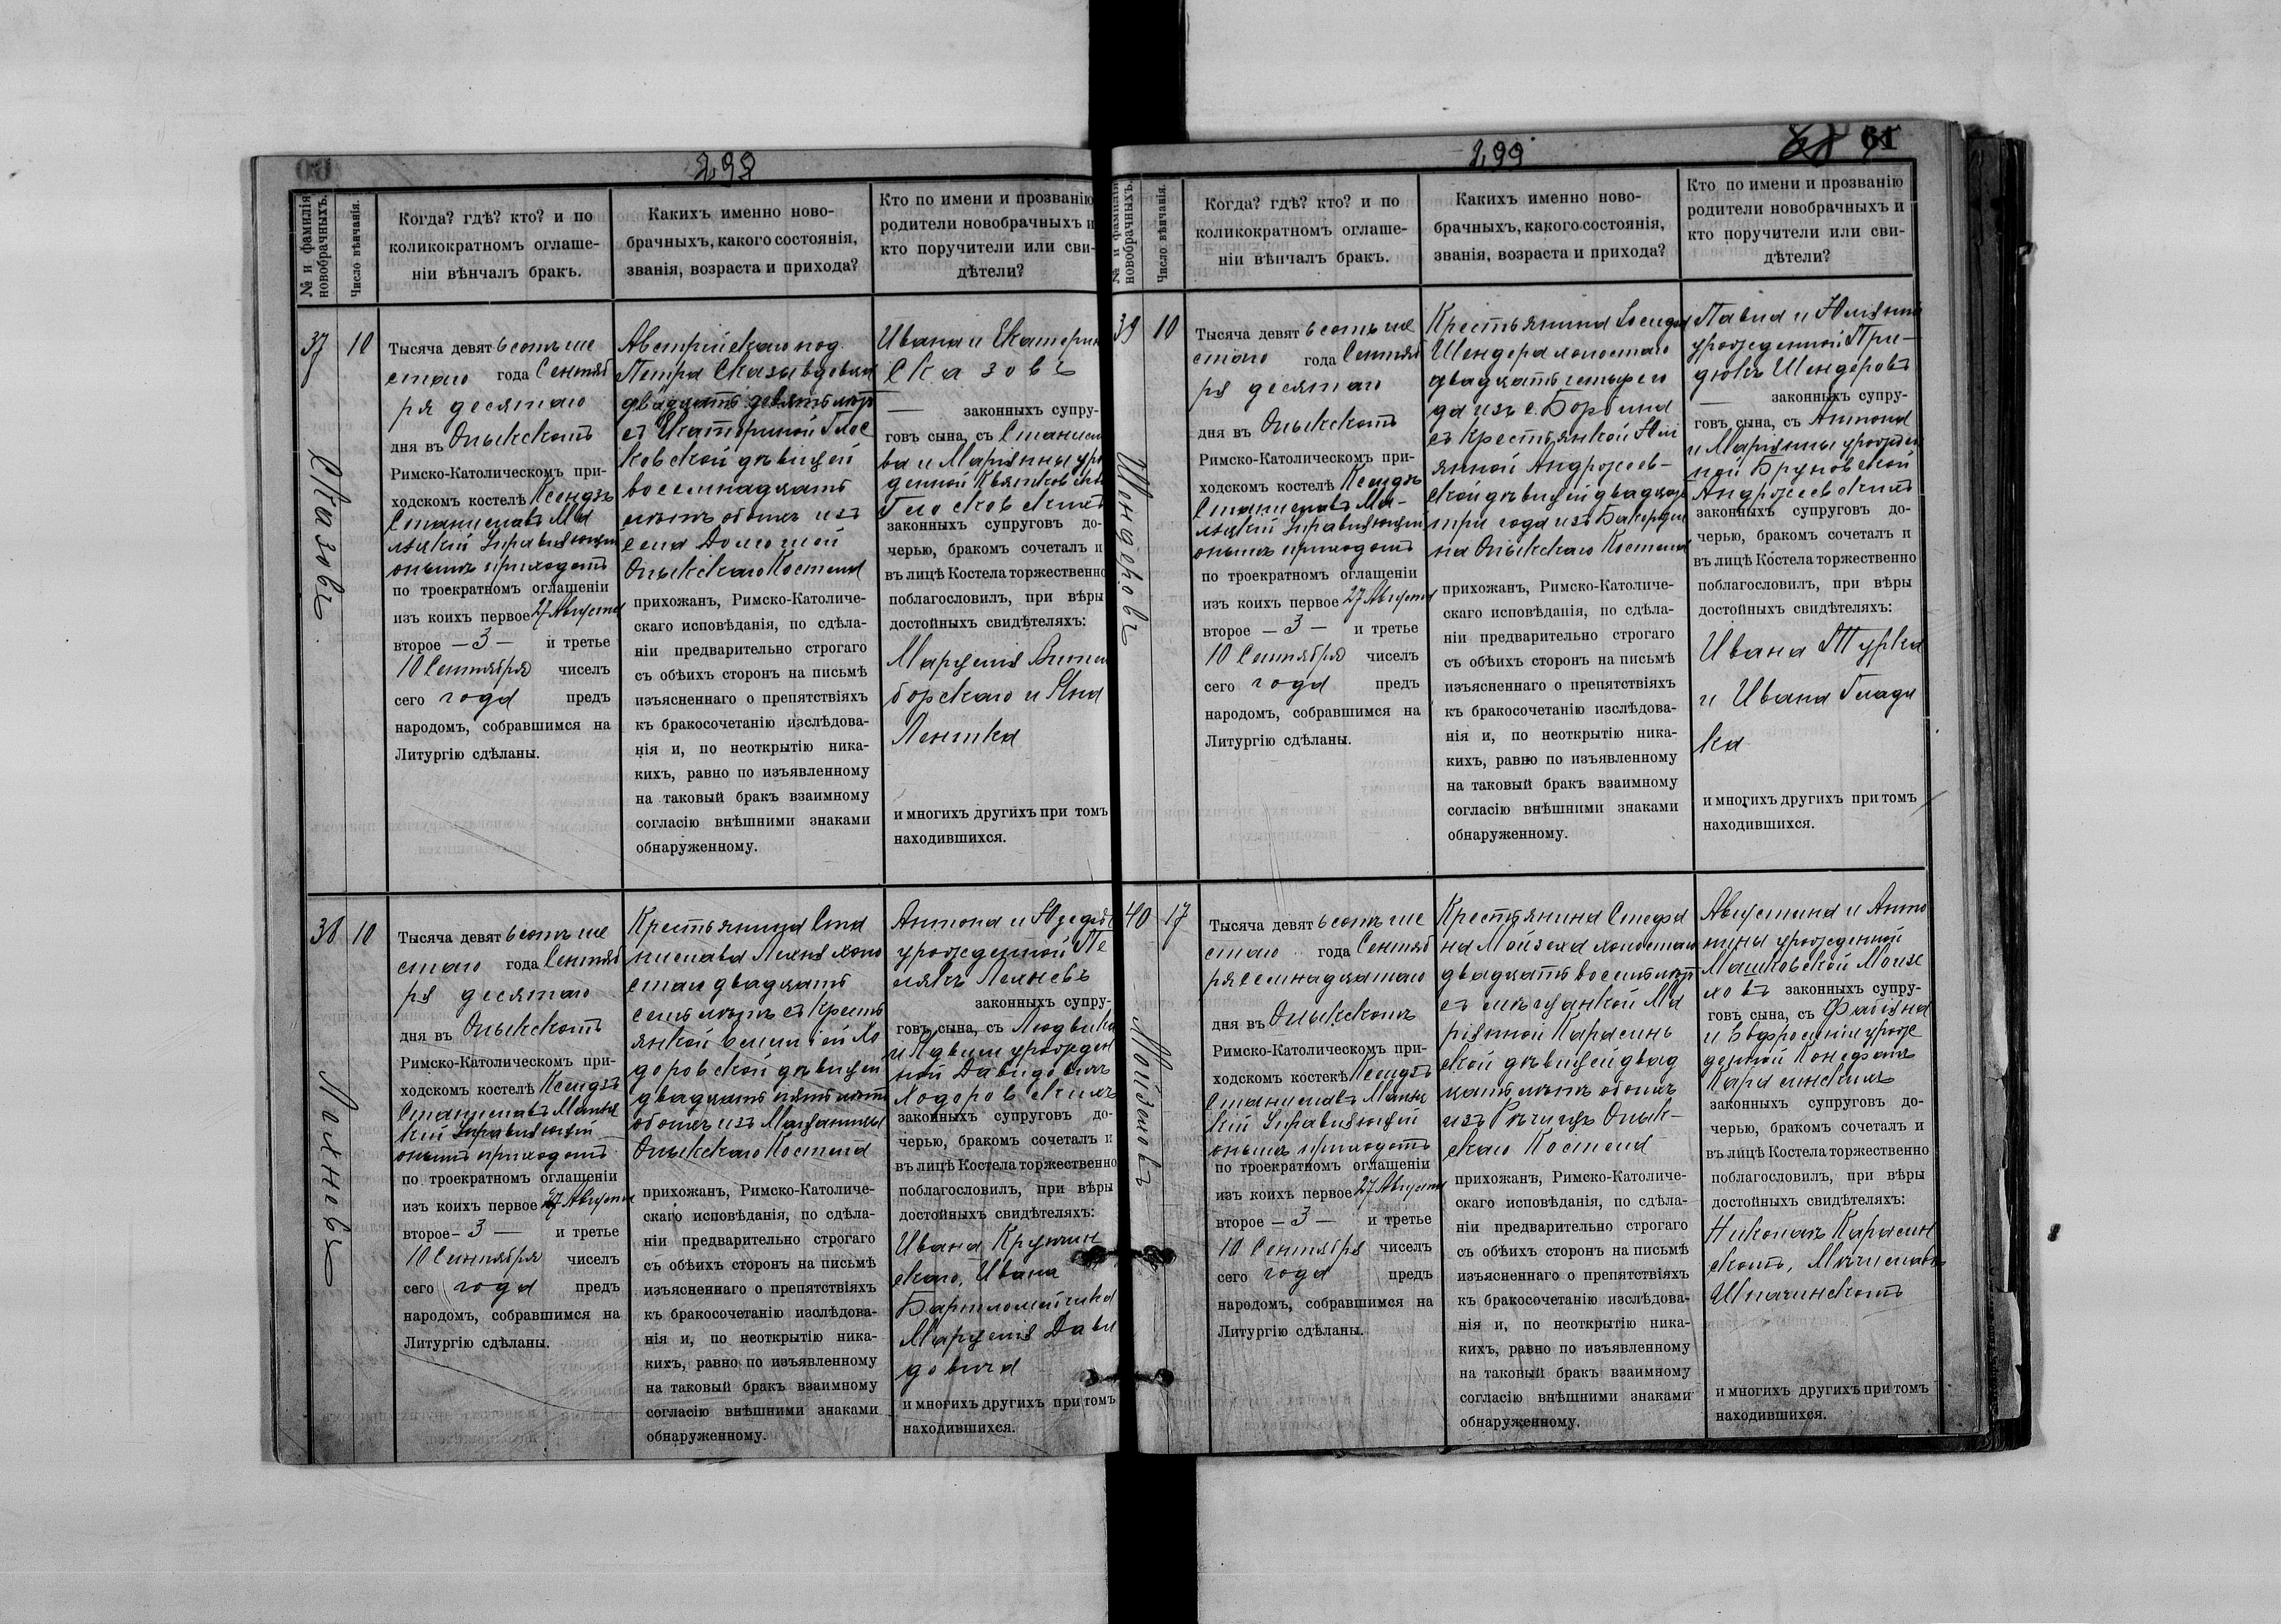 298
№ и фамилія новобрачныхъ.
Число вѣнчанія.
Когда? гдѣ? кто? и по
коликократномъ оглаше-
ніи вѣнчалъ бракъ.
Какихъ именно ново-
брачныхъ, какого состоянія,
званія, возраста и прихода?
Кто по имени и прозванію
родители новобрачныхъ и
кто поручители или сви-
дѣтели?
37
10
Сказовъ
Тысяча девятьсотъ ше
стаго года Сентяб
ря десятаго
дня въ Олыкскомъ
Римско-Католическомъ при-
ходскомъ костелѣ Ксендзъ
Станиславъ
Управляющій
онымъ приходомъ
по троекратномъ оглашеніи
изъ коихъ первое 27 Августа
второе – 3 – и третье
10 Сентября чиселъ
сего года предъ
народомъ, собравшимся на
Литургію сдѣланы.
Австрійскаго под.
Петра Сказъ вдовца
двадцать девять лѣт
съ Екатериной Глос
ковской дѣвицей
восемнадцать
лѣтъ обоихъ изъ
села
Олыкскаго Костела
прихожанъ, Римско-Католиче-
скаго исповѣданія, по сдѣла-
ніи предварительно строгаго
съ обѣихъ сторонъ на письмѣ
изъясненнаго о препятствіяхъ
къ бракосочетанію изслѣдова-
нія и, по неоткрытію ника-
кихъ, равно по изъявленному
на таковый бракъ взаимному
согласію внѣшними знаками
обнаруженному.
Ивана и Екатерин
Сказовъ
— законныхъ супру-
говъ сына, съ Станисла
ва и Маріянны урож
денной
Глосковскихъ
законныхъ супруговъ до-
черью, бракомъ сочеталъ и
въ лицѣ Костела торжественно
поблагословилъ, при вѣры
достойныхъ свидѣтеляхъ:
Марцелія
борскаго и Яна
и многихъ другихъ при томъ
находившихся.
38
10
Лехневъ
Тысяча девятьсотъ ше
стаго года Сентяб
ря десятаго
дня въ Олыкскомъ
Римско-Католическомъ при-
ходскомъ костелѣ Ксендзъ
Станиславъ
Управляющій
онымъ приходомъ
по троекратномъ оглашеніи
изъ коихъ первое 27 Августа
второе – 3 — и третье
10 Сентября чиселъ
сего года предъ
народомъ, собравшимся на
Литургію сдѣланы.
Крестьянина Ста
нислава Лехня холо
стаго двадцать
семь лѣтъ съ Крестъ
янкой Хо
доровской дѣвицей
двадцать пять лѣтъ
обоихъ изъ
Олыкскаго Костела
прихожанъ, Римско-Католиче-
скаго исповѣданія, по сдѣла-
ніи предварительно строгаго
съ обѣихъ сторонъ на письмѣ
изъясненнаго о препятствіяхъ
къ бракосочетанію изслѣдова-
нія и, по неоткрытію ника-
кихъ, равно по изъявленному
на таковый бракъ взаимному
согласію внѣшними знаками
обнаруженному.
Антона и Юзефы
урожденной Пе
лякъ Лехневъ
законныхъ супру-
говъ сына, съ Людвика
и Ядвиги урожден
ной Давидовичъ
Ходоровскихъ
законныхъ супруговъ до-
черью, бракомъ сочеталъ и
въ лицѣ Костела торжественно
поблагословилъ, при вѣры
достойныхъ свидѣтеляхъ:
Ивана Кручин
скаго, Ивана
Бартломейчика
Марцелія Дави
довича
и многихъ другихъ при томъ
находившихся.
299
61
№ и фамилія новобрачныхъ.
Число вѣнчанія.
Когда? гдѣ? кто? и по
коликократномъ оглаше-
ніи вѣнчалъ бракъ.
Какихъ именно ново-
брачныхъ, какого состоянія,
званія, возраста и прихода?
Кто по имени и прозванію
родители новобрачныхъ и
кто поручители или сви-
дѣтели?
39
10
Шендеровъ
Тысяча девятьсотъ ше
стаго года Сентяб
ря десятаго
дня въ Олыкскомъ
Римско-Католическомъ при-
ходскомъ костелѣ Ксендзъ
Станиславъ
Управляющій
онымъ приходомъ
по троекратномъ оглашеніи
изъ коихъ первое 27 Августа
второе – 3 – и третье
10 Сентября чиселъ
сего года предъ
народомъ, собравшимся на
Литургію сдѣланы.
Крестьянина Іосифа
Шендера холостаго
двадцать четыре го
да изъ с.
съ Крестьянкой Юлі
янной Андржеев-
ской дѣвицей двадцать
три года изъ
на Олыкскаго Костела
прихожанъ, Римско-Католиче-
скаго исповѣданія, по сдѣла-
ніи предварительно строгаго
съ обѣихъ сторонъ на письмѣ
изъясненнаго о препятствіяхъ
къ бракосочетанію изслѣдова-
нія и, по неоткрытію ника-
кихъ, равно по изъявленному
на таковый бракъ взаимному
согласію внѣшними знаками
обнаруженному.
Павла и Юліянны
урожденной При-
дюкъ Шендеровъ
— законныхъ супру-
говъ сына, съ Антона
и Маріянны урожден
ной Бруновской
Андржеевскихъ
законныхъ супруговъ до-
черью, бракомъ сочеталъ и
въ лицѣ Костела торжественно
поблагословилъ, при вѣры
достойныхъ свидѣтеляхъ:
Ивана Турка
и Ивана Глады
ка
и многихъ другихъ при томъ
находившихся.
40
17
Мойзховъ
Тысяча девятьсотъ ше
стаго года Сентяб
ря семнадцатаго
дня въ Олыкскомъ
Римско-Католическомъ при-
ходскомъ костекѣ Ксендзъ
Станиславъ
Управляющій
онымъ приходомъ
по троекратномъ оглашеніи
изъ коихъ первое 27 Августа
второе – 3 – и третье
10 Сентября чиселъ
сего года предъ
народомъ, собравшимся на
Литургію сдѣланы.
Крестьянина Стефа
на Мойзеха холостаго
двадцать восемь лѣтъ
съ мѣщанкой Ма
ріянной Карасинь
ской дѣвицей двад
цать лѣтъ обоихъ
изъ Рѣчищъ Олык-
скаго Костела
прихожанъ, Римско-Католиче-
скаго исповѣданія, по сдѣла-
ніи предварительно строгаго
съ обѣихъ сторонъ на письмѣ
изъясненнаго о препятствіяхъ
къ бракосочетанію изслѣдова-
нія и, по неоткрытію ника-
кихъ, равно по изъявленному
на таковый бракъ взаимному
согласію внѣшними знаками
обнаруженному.
Августина и Анто
нины урожденной
Машковской Моизе
ховъ законныхъ супру-
говъ сына, съ Фабіяна
и Евфросиніи урож
денной
Карасинскихъ
законныхъ супруговъ до-
черью, бракомъ сочеталъ и
въ лицѣ Костела торжественно
поблагословилъ, при вѣры
достойныхъ свидѣтеляхъ:
Карасин
скомъ, Мечиславъ
и многихъ другихъ при томъ
находившихся.